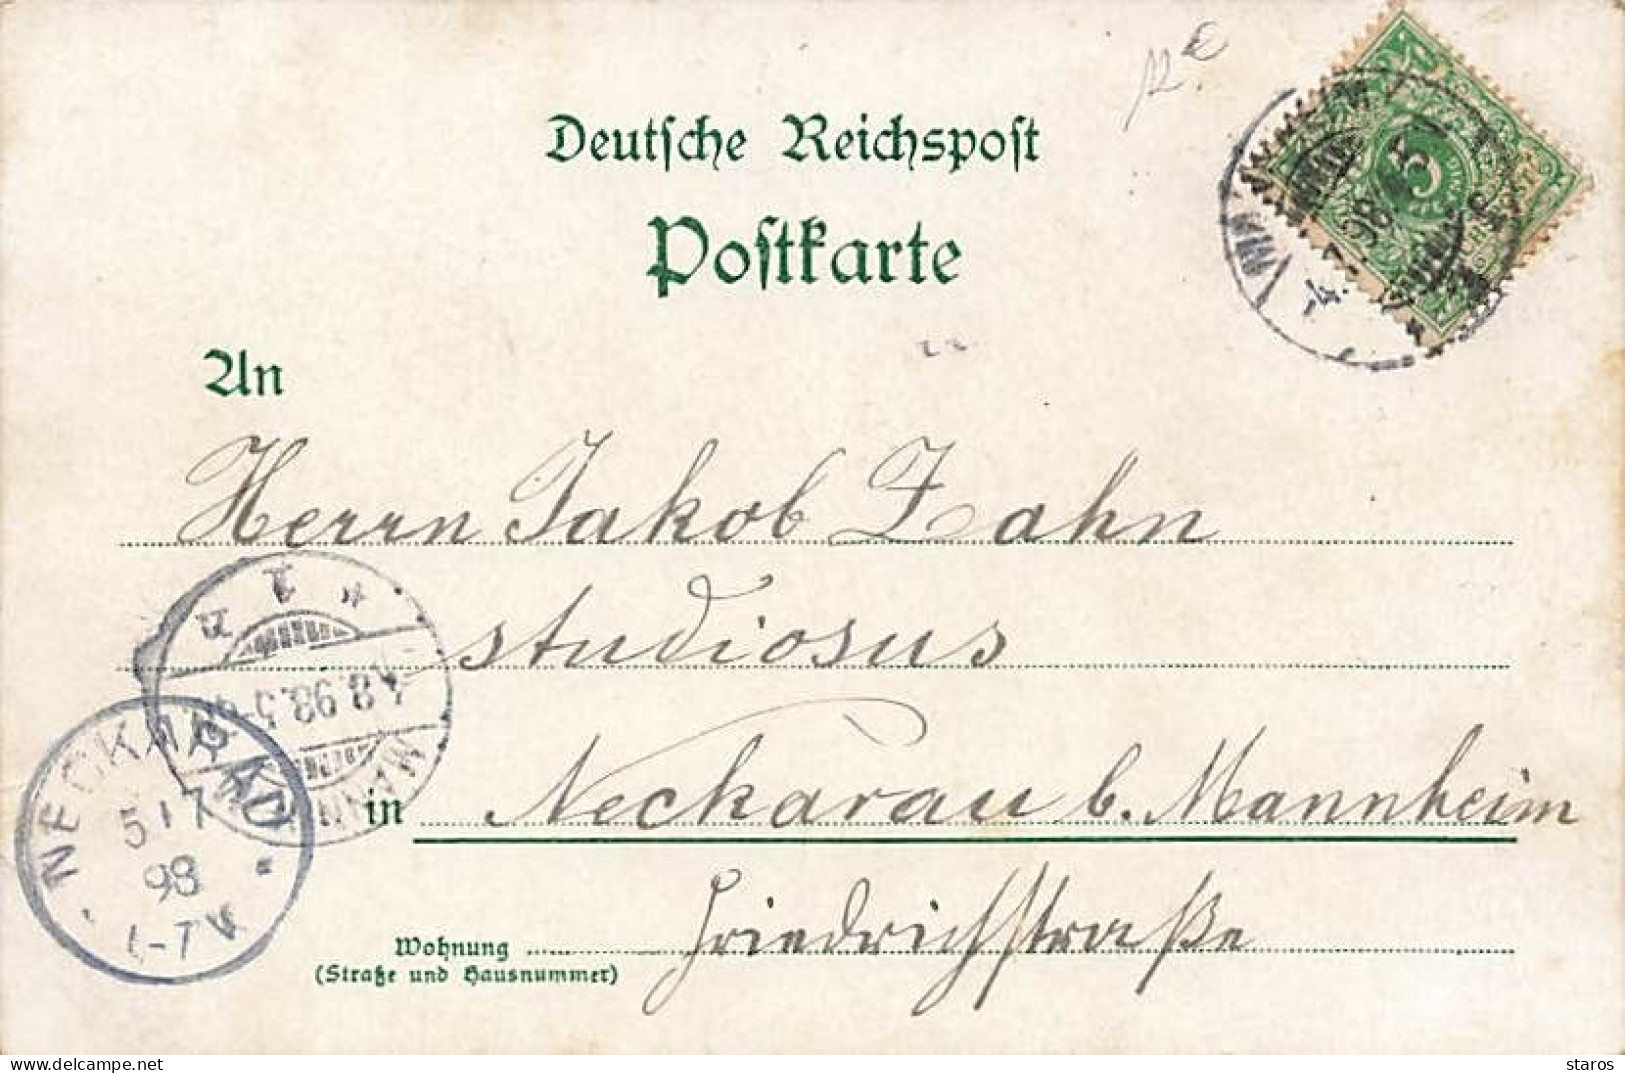 12 €
Deutsche Reichspost
Postkarte
An
Herrn Jakob Zahn
studiosus
in Neckarau b. Mannheim
Wohnung Friedrichstraße
(Straße und Hausnummer)
NECKARAU
5 7
98
-7 V
5
4.7.98
delcampe.net
staros